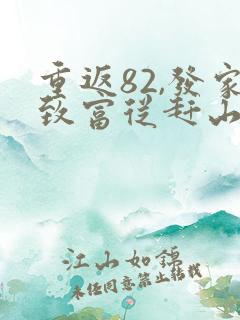 重返82,發家
致富從趕山
江山如錦
未任同意禁止轉載